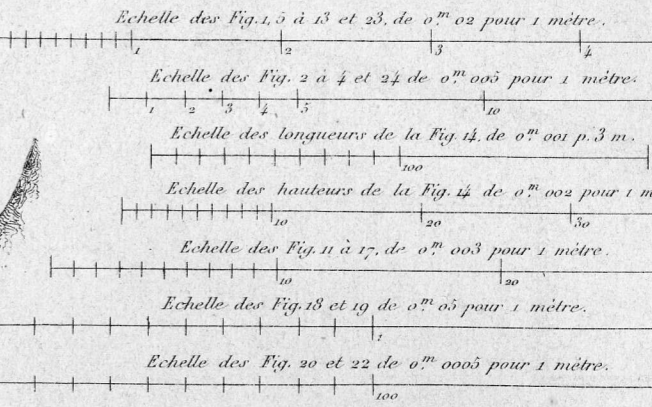 Echelle des Fig. 1, 5 à 13 et 23, de 0.m 02 pour 1 mètre.
1 2 3 4
Echelle des Fig. 2 à 4 et 24 de 0.m 005 pour 1 mètre.
1 2 3 4 5 10
Echelle des longueurs de la Fig. 14, de 0.m 001 p. 3 m.
100
Echelle des hauteurs de la Fig. 14 de 0.m 002 pour 1 m
10 20 30
Echelle des Fig. 11 à 17, de 0.m 003 pour 1 mètre.
10 20
Echelle des Fig. 18 et 19 de 0.m 05 pour 1 mètre.
1
Echelle des Fig. 20 et 22 de 0.m 0005 pour 1 mètre.
100